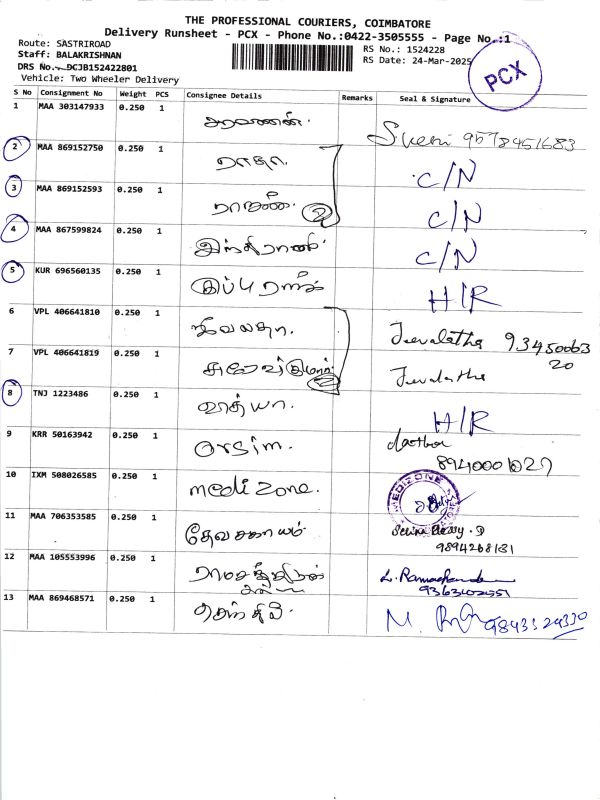 THE PROFESSIONAL COURIERS, COIMBATORE
Delivery Runsheet - PCX - Phone No.:0422-3505555 - Page No.:1
Route: SASTRIROAD
Staff: BALAKRISHNAN
DRS No.: DCJB152422801
Vehicle: Two Wheeler Delivery
RS No.: 1524228
RS Date: 24-Mar-2025
PCX
S No Consignment No Weight PCS Consignee Details Remarks Seal & Signature
1 MAA 303147933 0.250 1 சரவணன். 9578451683
2 MAA 869152750 0.250 1 ராதா. C/N
3 MAA 869152593 0.250 1 2 C/N
4 MAA 867599824 0.250 1 இந்திராணி C/N
5 KUR 696560135 0.250 1 H/R
6 VPL 406641810 0.250 1 ஜீவலதா. Jeevalatha 93450063
20
7 VPL 406641819 0.250 1 2 Jeevalatha
8 TNJ 1223486 0.250 1 வாத்யா. H/R
9 KRR 50163942 0.250 1 Orsim.
8940001027
10 IXM 508026585 0.250 1 medizone. MEDIZONE
11 MAA 706353585 0.250 1 தேவசகாயம்
9894268131
12 MAA 105553996 0.250 1 L. Ramachandran
9363102551
13 MAA 869468571 0.250 1 தென்றல் M. 9843324330